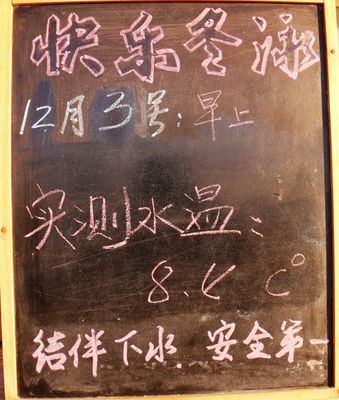 快乐冬泳
12月3号：早上
实测水温：
8.4 C°
结伴下水.安全第一